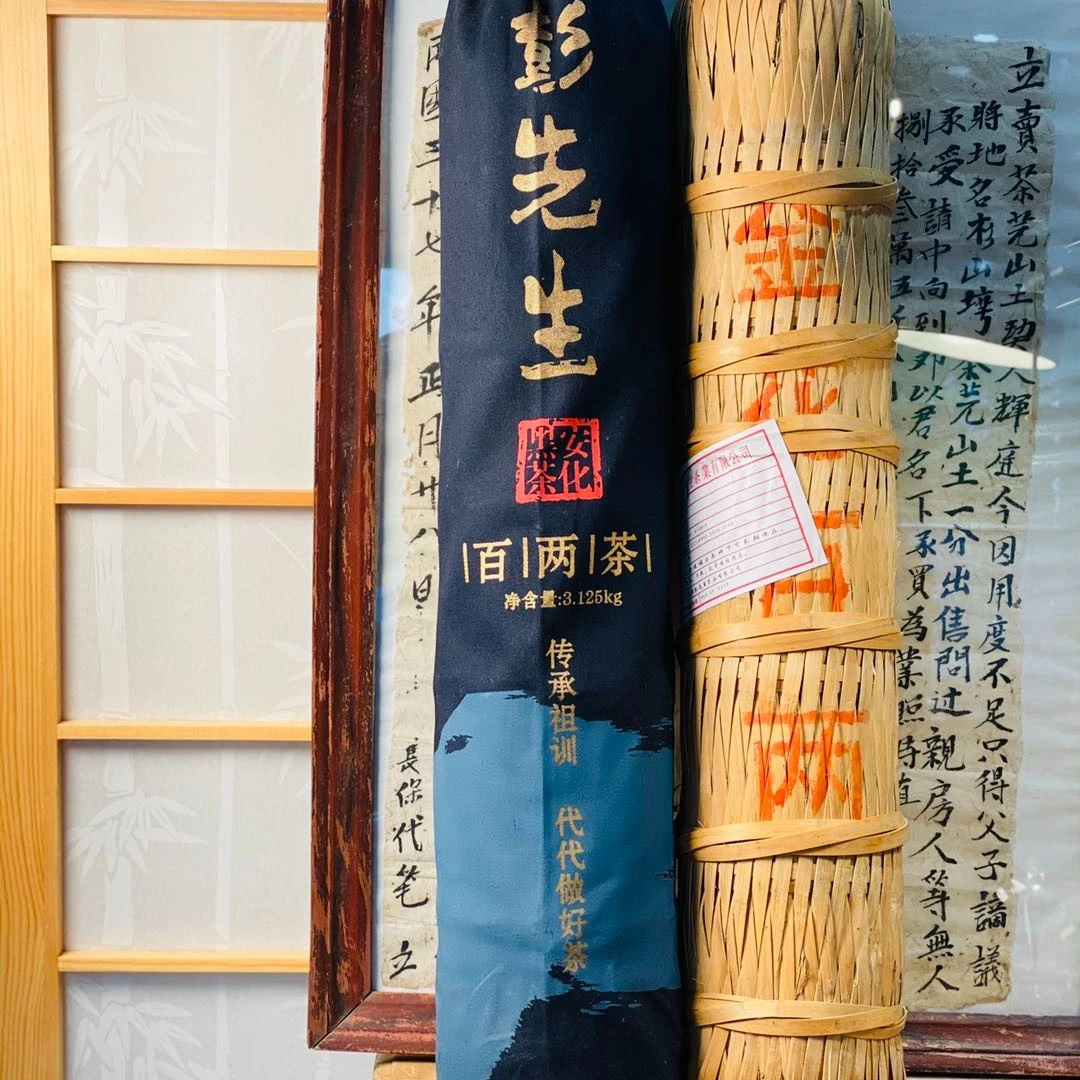 彭先生
安化
黑茶
百两茶
净含量:3.125kg
传承祖训 代代做好茶
金花百两
茶業有限公司
立賣茶芫山土契人輝庭今因用度不足只得父子謫議
將地名杉山塝茶芫山土一分出售問过親房人等無人
承受請中向到
以君名下承買為業照時值
捌拾叁萬
国三十七年正月廿八日
長保代笔
立